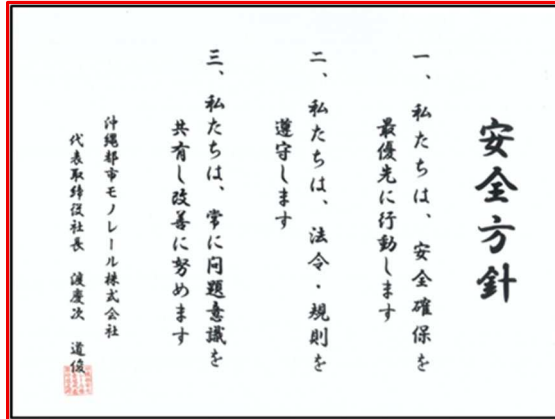 安全方針
一、私たちは、安全確保を
最優先に行動します
二、私たちは、法令・規則を
遵守します
三、私たちは、常に問題意識を
共有し改善に努めます
沖縄都市モノレール株式会社
代表取締役社長 渡慶次 道俊